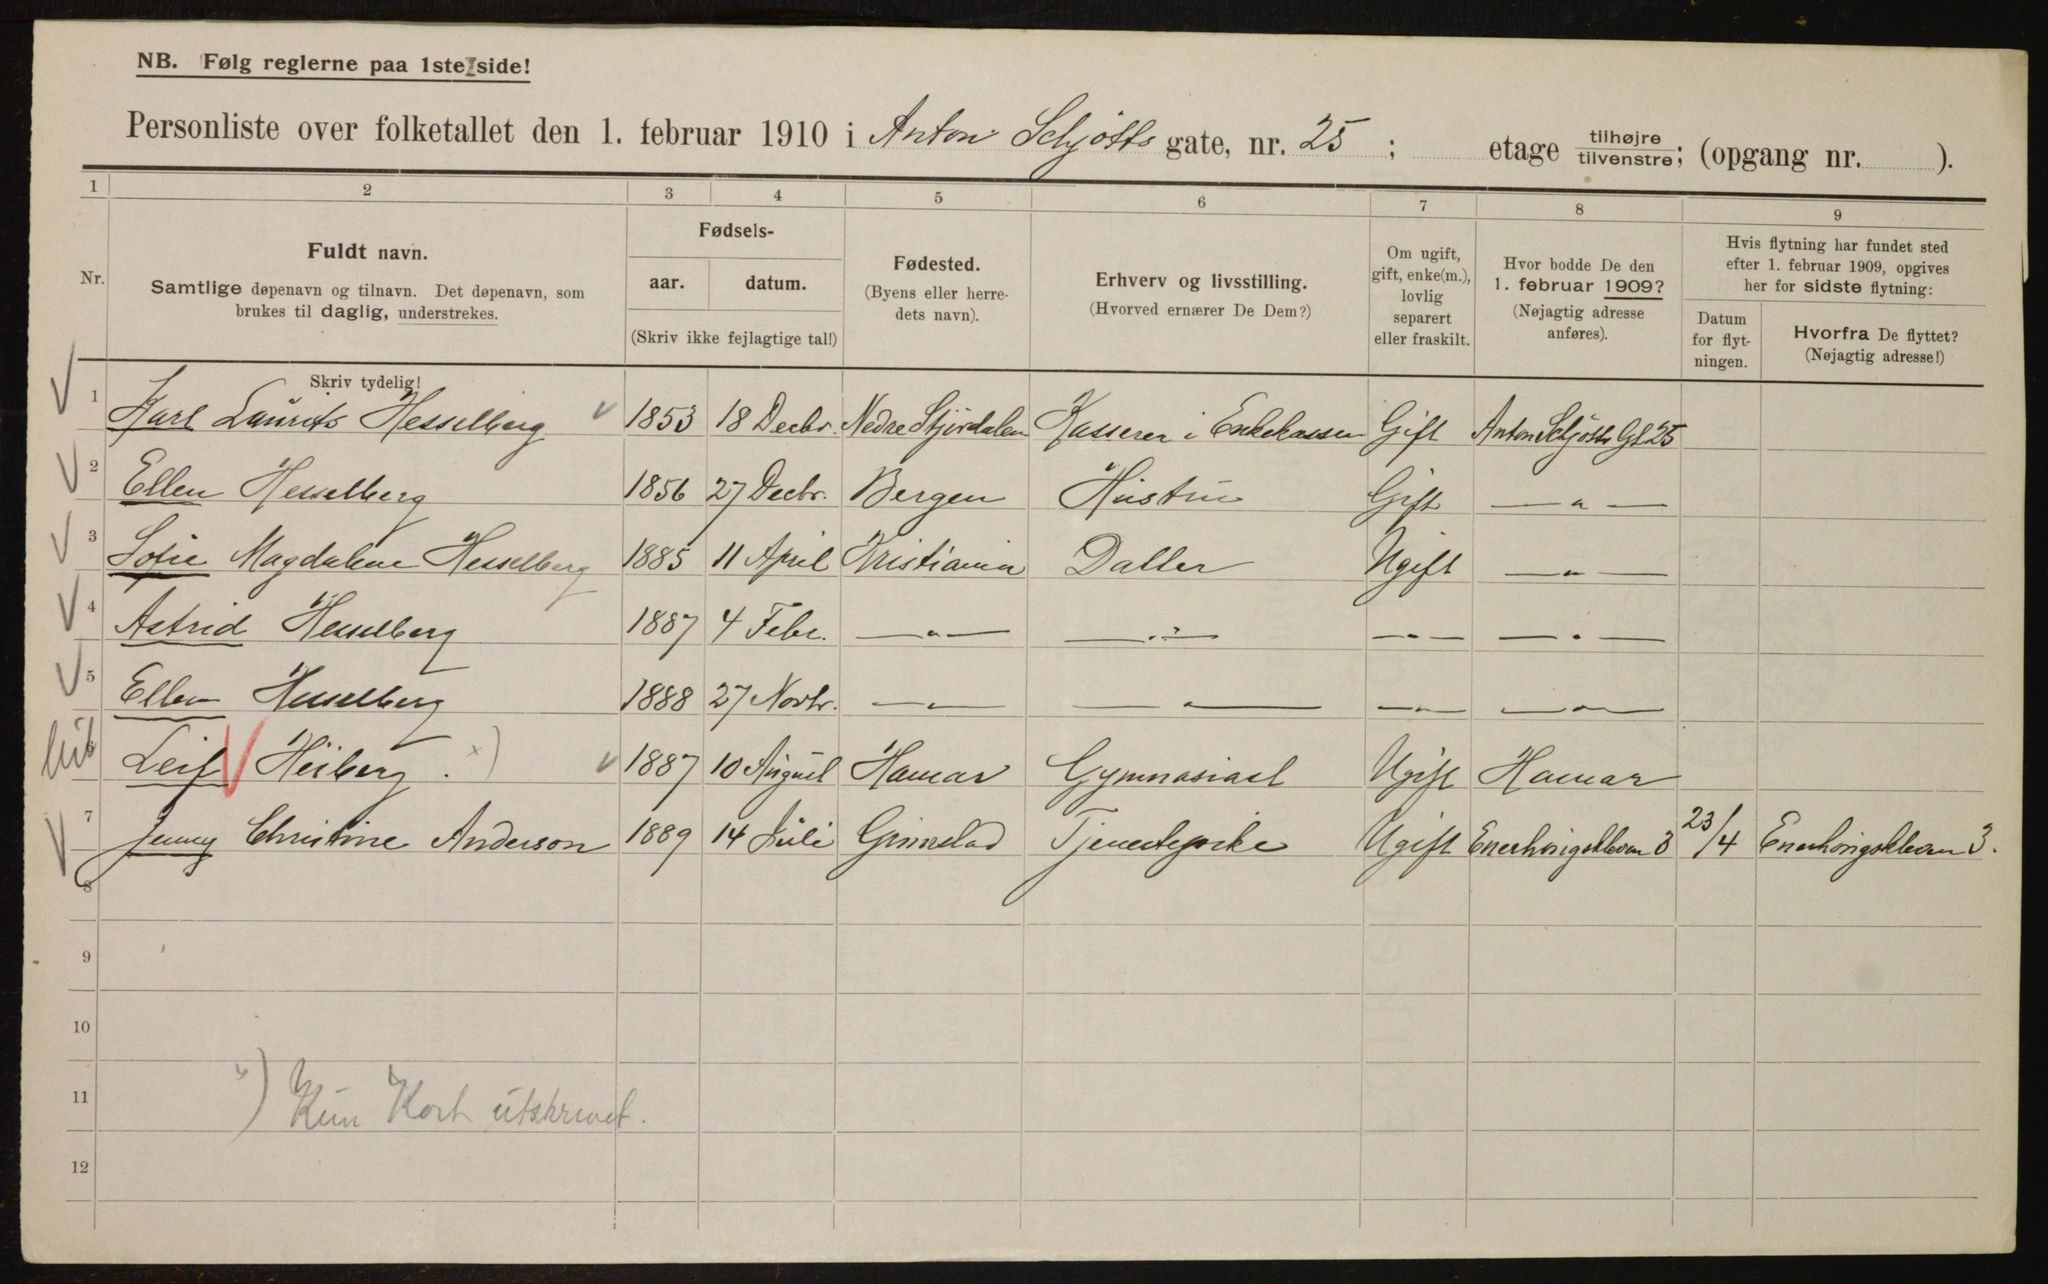 NB. Følg reglerne paa 1ste side!
Personliste over folketallet den 1. februar 1910 i Anton Schjøtts gate, nr. 25 ; etage tilhøjre/tilvenstre; (opgang nr. ).
1 2 3 4 5 6 7 8 9
Nr.
Fuldt navn.
Samtlige døpenavn og tilnavn. Det døpenavn, som
brukes til daglig, understrekes.
Skriv tydelig!
Fødsels-
aar. datum.
(Skriv ikke fejlagtige tal!)
Fødested.
(Byens eller herre-
dets navn).
Erhverv og livsstilling.
(Hvorved ernærer De Dem?)
Om ugift,
gift, enke(m.),
lovlig
separert
eller fraskilt.
Hvor bodde De den
1. februar 1909?
(Nøjagtig adresse
anføres).
Hvis flytning har fundet sted
efter 1. februar 1909, opgives
her for sidste flytning:
Datum
for flyt-
ningen.
Hvorfra De flyttet?
(Nøjagtig adresse!)
1 Karl Laurits Hesselberg 1853 18 Decbr. Nedre Stjørdalen Kasserer i Enkekassen Gift Anton Schjøtts Gt 25
2 Ellen Hesselberg 1856 27 Decbr. Bergen Hustru Gift —„—
3 Sofie Magdalene Hesselberg 1885 11 April Kristiania Datter Ugift —„—
4 Astrid Hesselberg 1887 4 Febr. —„— —„— —„— —„—
5 Ellen Hesselberg 1888 27 Novbr. —„— —„— —„— —„—
6 Leif Heiberg x) 1887 10 August Hamar Gymnasiast Ugift Hamar
7 Jenny Christine Anderson 1889 14 Juli Grimstad Tjenestepike Ugift Enerhaugskleven 3 23/4 Enerhaugskleven 3.
8
9
10
11
x) Kun Kort utskrevet.
12